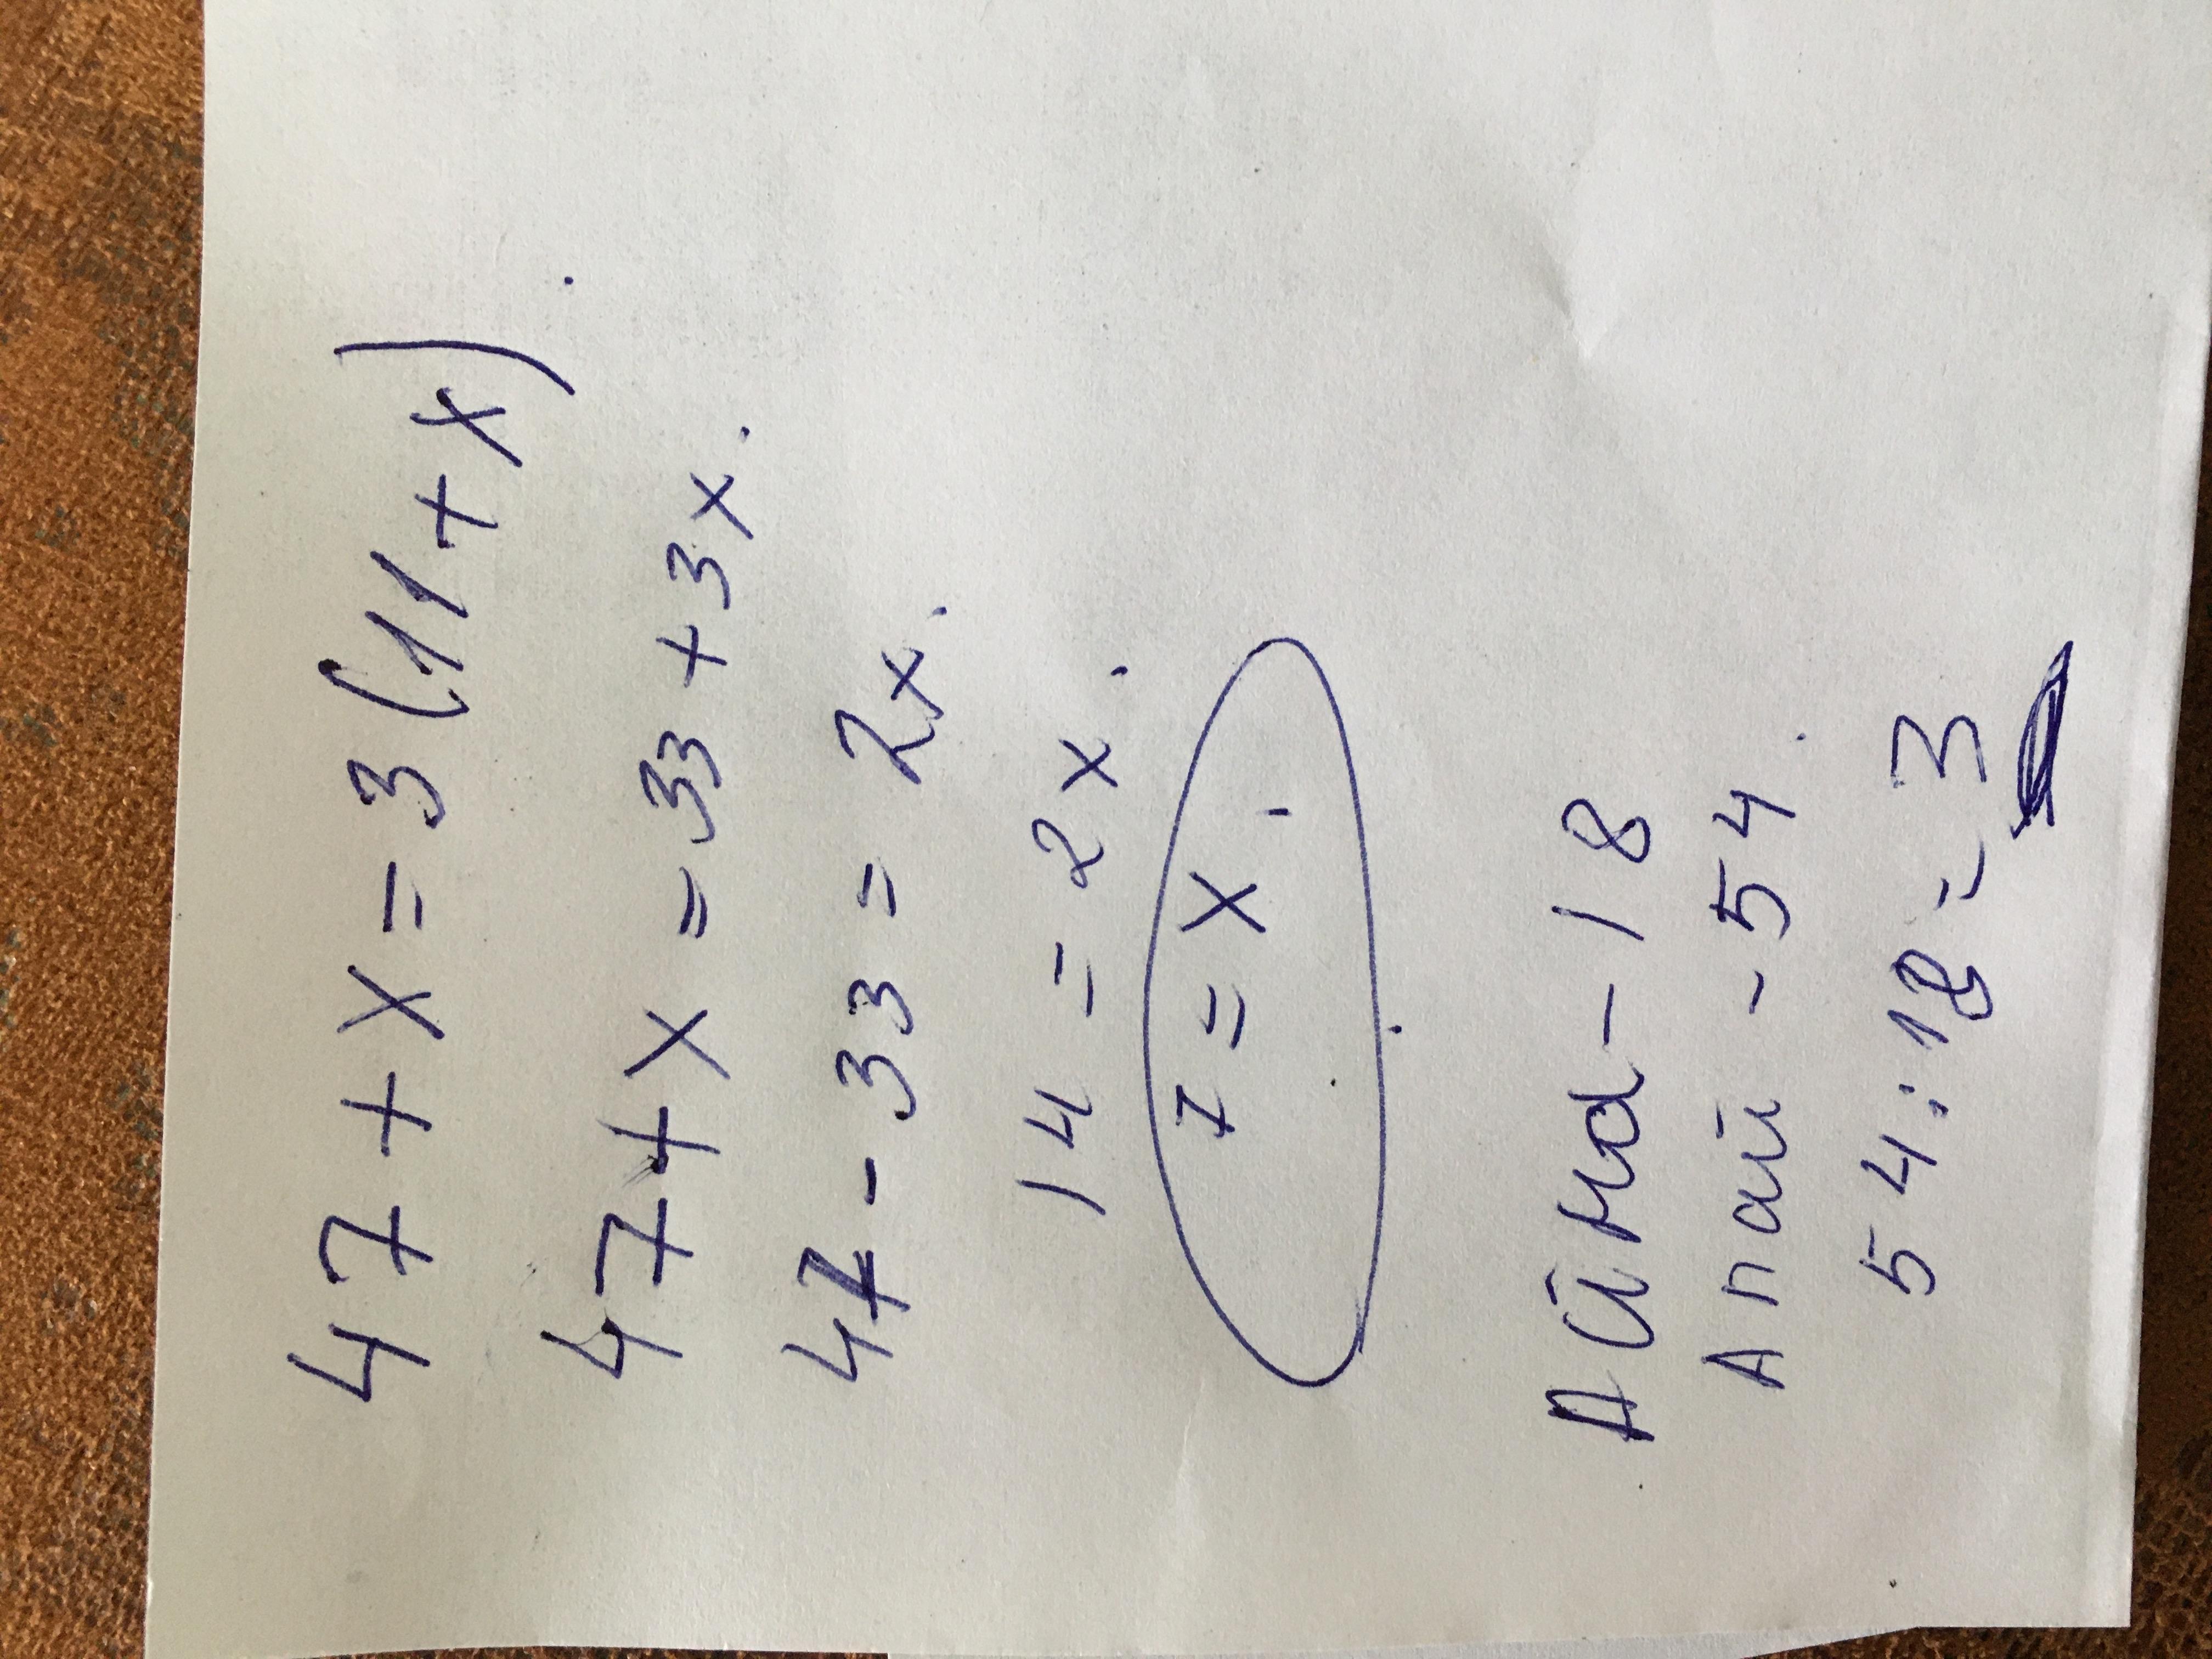 47+x=3(11+x)
47+x=33+3x.
47-33=2x.
14=2x.
7=x.
Айна-18
Апай-54.
54:18=3